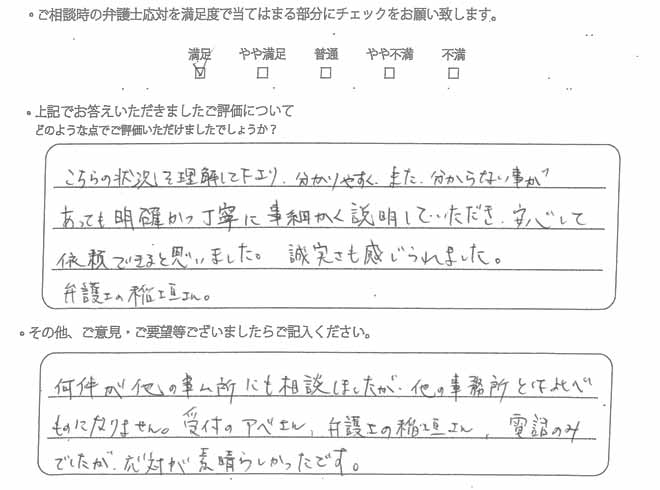 ・ご相談時の弁護士応対を満足度で当てはまる部分にチェックをお願い致します。
満足 やや満足 普通 やや不満 不満
・上記でお答えいただきましたご評価について
どのような点でご評価いただけましたでしょうか?
こちらの状況を理解して下さり、分かりやすく、また、分からない事が
あっても明確かつ丁寧に事細かく説明していただき、安心して
依頼できると思いました。 誠実さも感じられました。
弁護士の稲垣さん。
・その他、ご意見・ご要望等ございましたらご記入ください。
何件か他の事ム所にも相談しましたが、他の事務所とは比べ
ものになりません。受付のアベさん、弁護士の稲垣さん、電話のみ
でしたが、応対が素晴らしかったです。